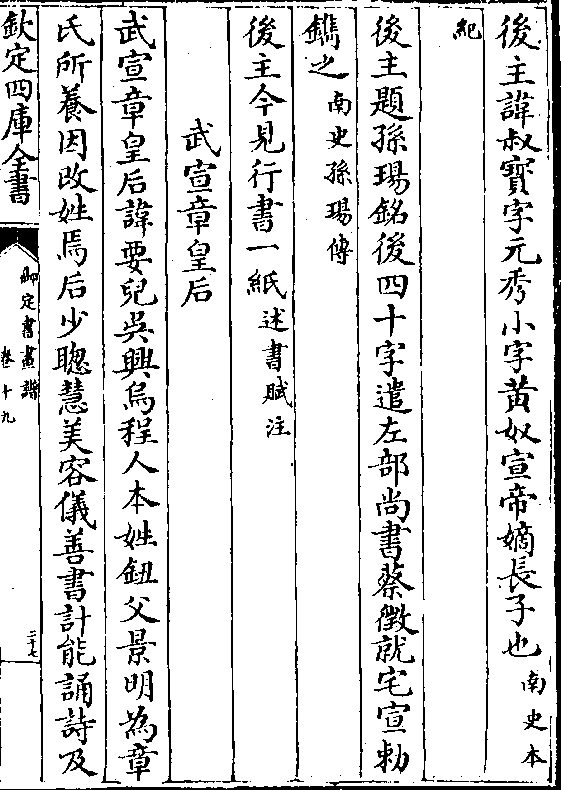 後主諱叔寳字元秀小字黄奴宣帝嫡長子也南史本
紀
後主題孫瑒銘後四十字遣左部尚書蔡徵就宅宣勅
鐫之南史孫瑒傳
後主今見行書一紙述書賦注
武宣章皇后
武宣章皇后諱要兒吳興烏程人本姓鈕父景明為章
氏所養因改姓焉后少聰慧美容儀善書計能誦詩及
欽定四庫全書
御定書畫譜
卷十九
二十七